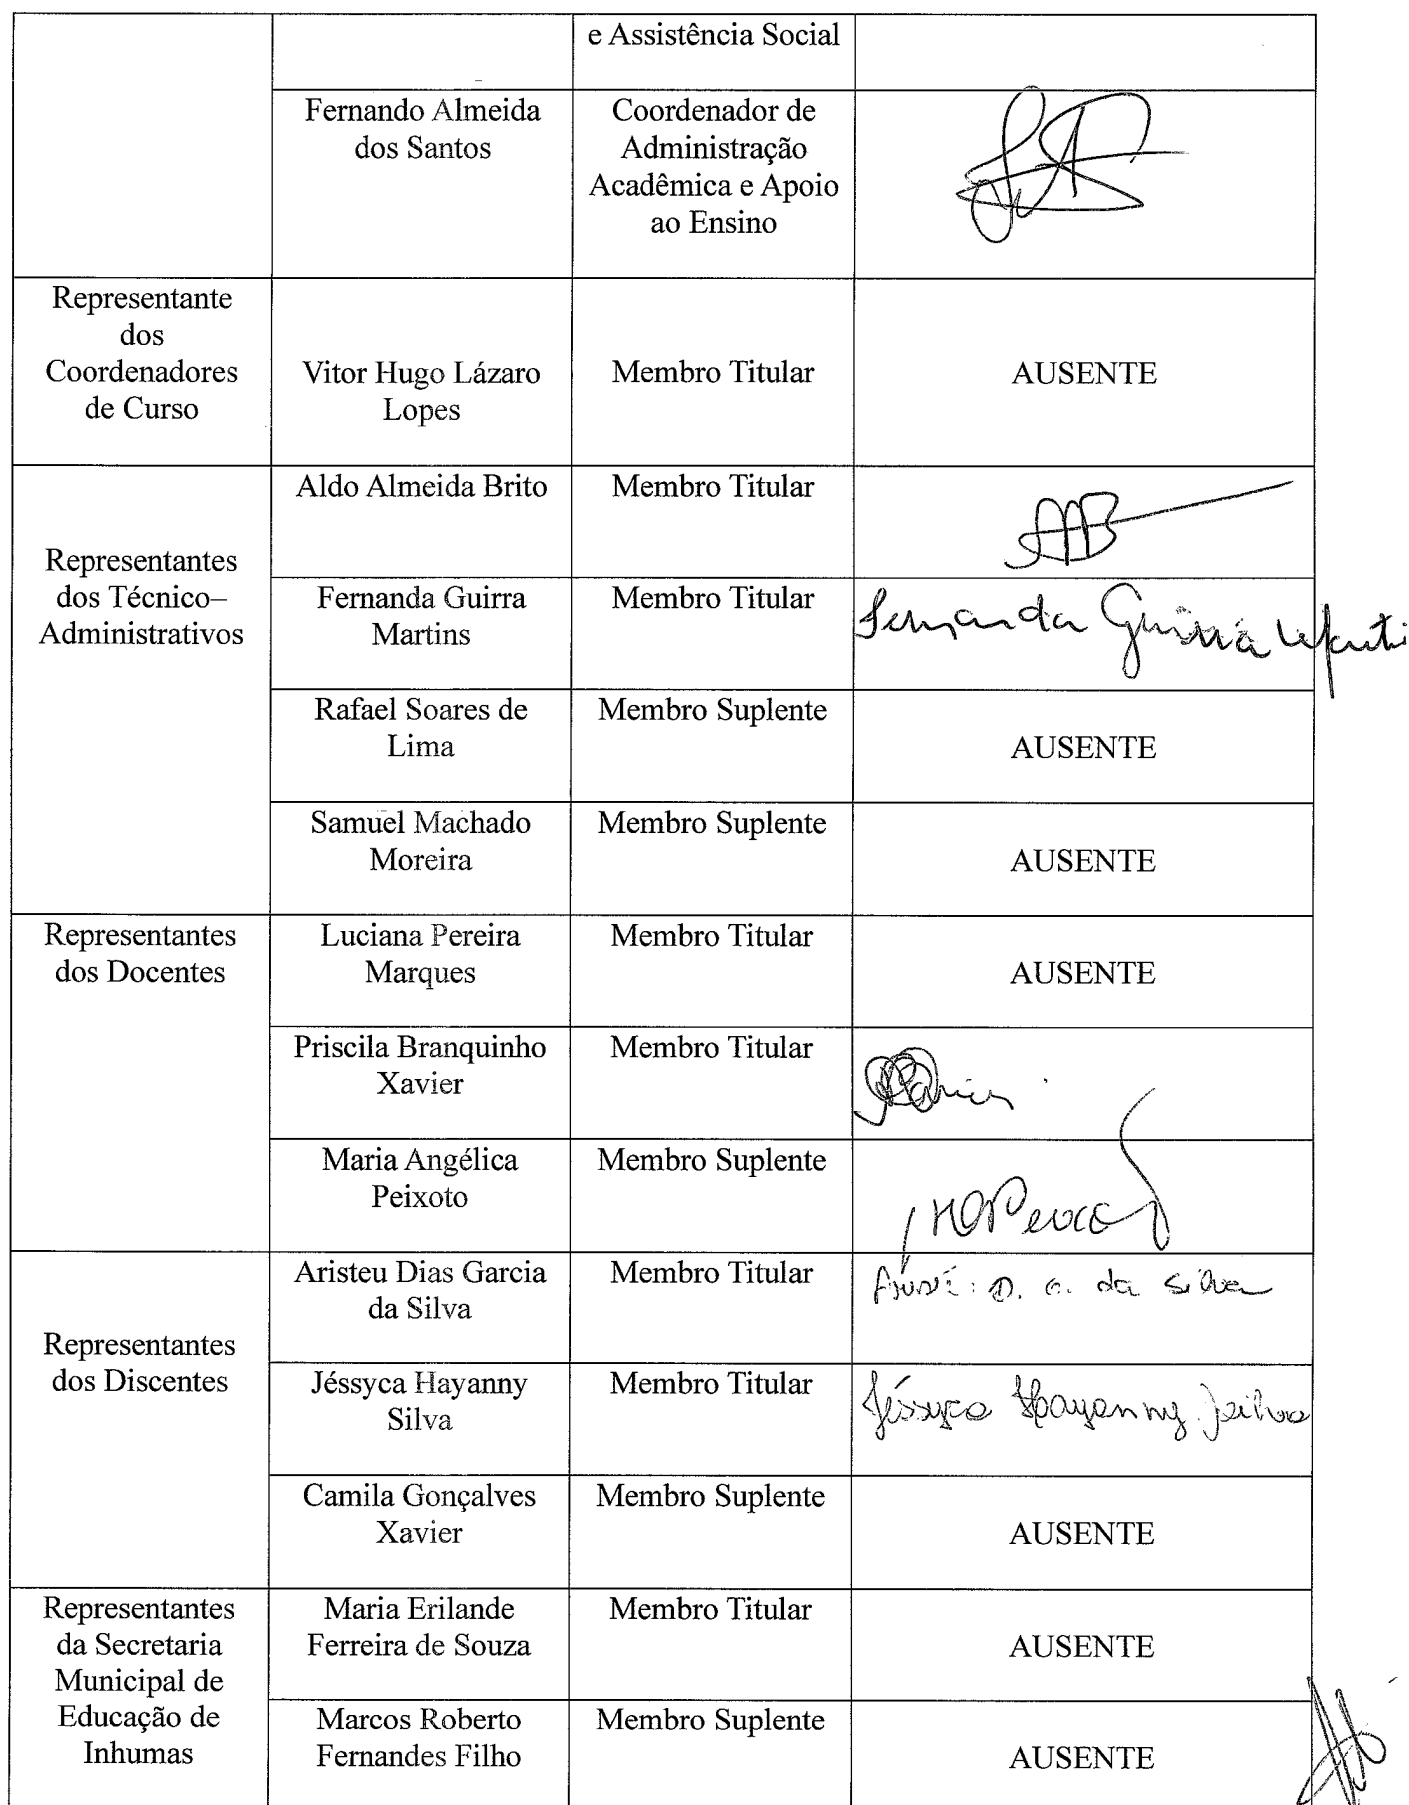 e Assistência Social
Fernando Almeida
dos Santos
Coordenador de
Administração
Acadêmica e Apoio
ao Ensino
Representante
dos
Coordenadores
de Curso
Vitor Hugo Lázaro
Lopes
Membro Titular
AUSENTE
Representantes
dos Técnico–
Administrativos
Aldo Almeida Brito
Membro Titular
Fernanda Guirra
Martins
Membro Titular
Fernanda Guirra
Rafael Soares de
Lima
Membro Suplente
AUSENTE
Samuel Machado
Moreira
Membro Suplente
AUSENTE
Representantes
dos Docentes
Luciana Pereira
Marques
Membro Titular
AUSENTE
Priscila Branquinho
Xavier
Membro Titular
Maria Angélica
Peixoto
Membro Suplente
Representantes
dos Discentes
Aristeu Dias Garcia
da Silva
Membro Titular
da Silva
Jéssyca Hayanny
Silva
Membro Titular
Jéssyca Hayanny Silva
Camila Gonçalves
Xavier
Membro Suplente
AUSENTE
Representantes
da Secretaria
Municipal de
Educação de
Inhumas
Maria Erilande
Ferreira de Souza
Membro Titular
AUSENTE
Marcos Roberto
Fernandes Filho
Membro Suplente
AUSENTE